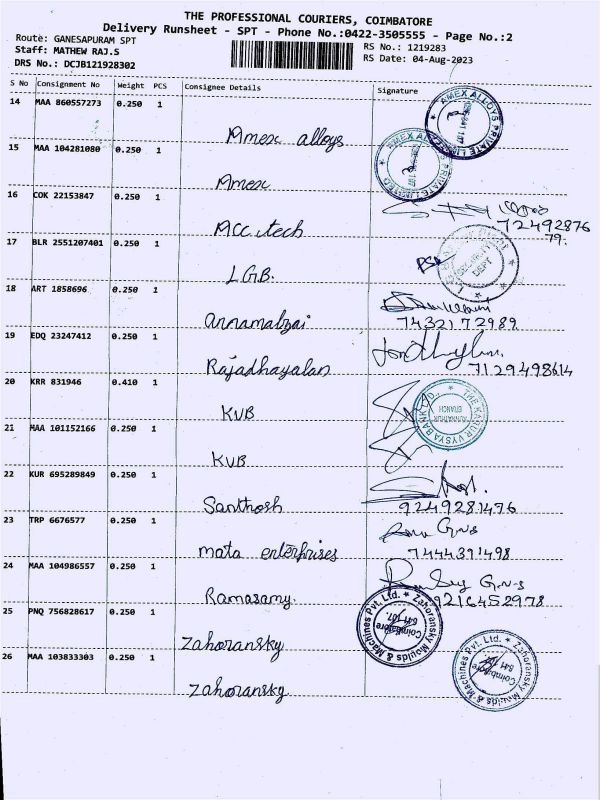 THE PROFESSIONAL COURIERS, COIMBATORE
Delivery Runsheet - SPT - Phone No.:0422-3505555 - Page No.:2
Route: GANESAPURAM SPT
RS No.: 1219283
Staff: MATHEW RAJ.S
RS Date: 04-Aug-2023
DRS No.: DCJB121928302
S No Consignment No Weight PCS Consignee Details Signature
14 MAA 860557273 0.250 1 Amex alloys
AMEX ALLOYS PRIVATE LIMITED
15 MAA 104281080 0.250 1 Amex
AMEX ALLOYS PRIVATE LIMITED
16 COK 22153847 0.250 1 Acc itech
7249287679.
17 BLR 2551207401 0.250 1 LGB.
DEPT
18 ART 1858696 0.250 1 annamalzai
7432172989
19 EDQ 23247412 0.250 1 Rajadhayalan
7129498614
20 KRR 831946 0.410 1 KVB
THE KARUR VYSYA BANK LTD.,
BRANCH
21 MAA 101152166 0.250 1 KVB
22 KUR 695289849 0.250 1 Santhosh
9249281476
23 TRP 6676577 0.250 1 mata enterprises
7444391498
24 MAA 104986557 0.250 1 Ramasamy.
9216452978
25 PNQ 756828617 0.250 1 Zahoransky
Zahoransky Moulds & Machines Pvt. Ltd.
Coimbatore
641 107.
26 MAA 103833303 0.250 1 Zahoransky
Zahoransky Moulds & Machines Pvt. Ltd.
Coimbatore